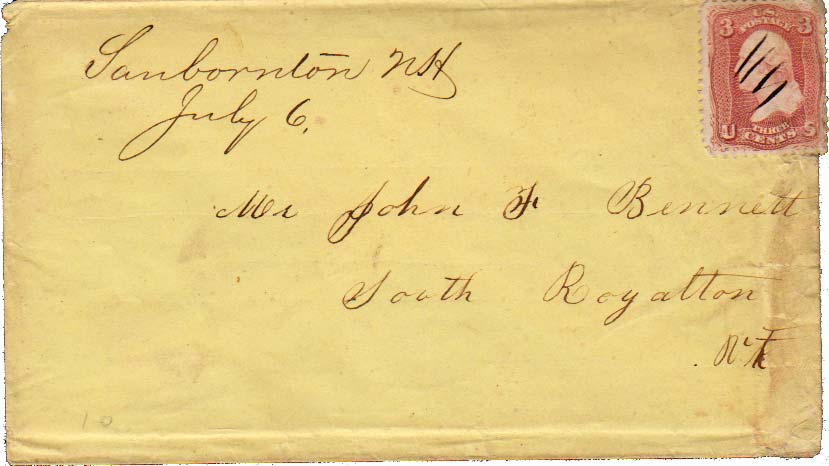 Sanbornton NH
July 6.
3 U.S. POSTAGE 3
U THREE CENTS S
Mr John F Bennett
South Royalton
10